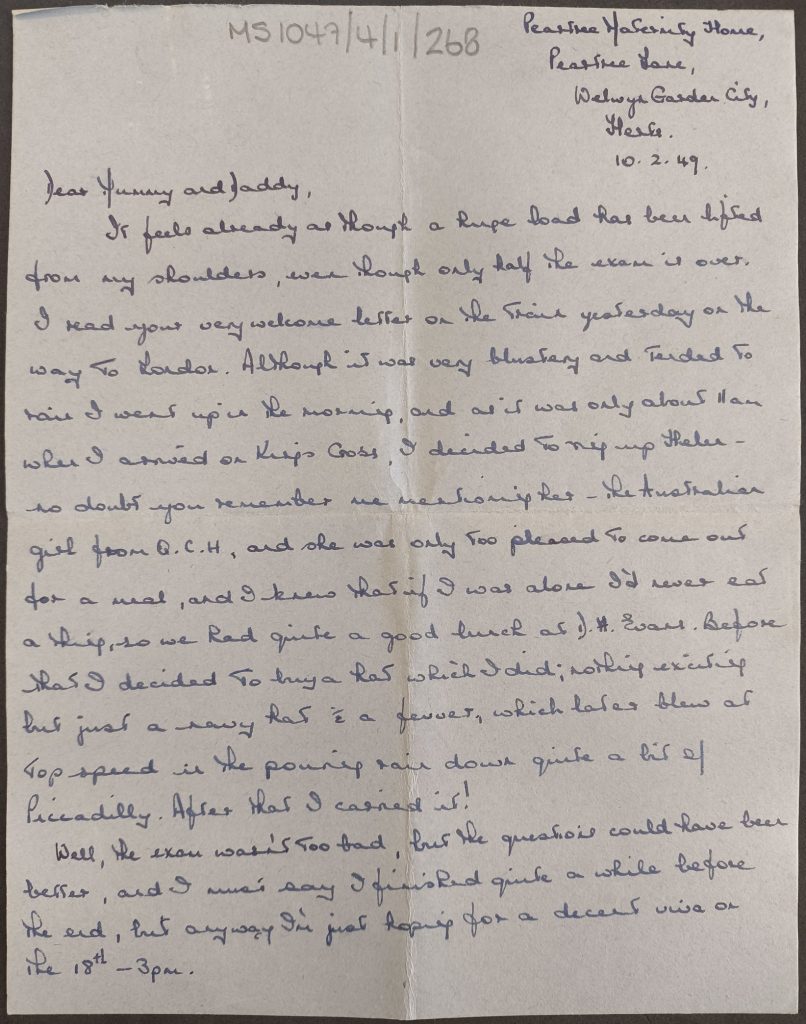 MS1047/4/1/268
Peartree Maternity Home,
Peartree Lane,
Welwyn Garden City,
Herts.
10.2.49.
Dear Mummy and Daddy,
It feels already as though a huge load has been lifted
from my shoulders, even though only half the exam is over.
I read your very welcome letter on the train yesterday on the
way to London. Although it was very blustery and tended to
rain I went up in the morning, and as it was only about 11am
when I arrived on Kings Cross, I decided to ring up Thelen -
no doubt you remember me mentioning her - the Australian
girl from Q.C.H, and she was only too pleased to come out
for a meal, and I knew that if I was alone I'd never eat
a thing, so we had quite a good lunch at D.H. Evans. Before
that I decided to buy a hat which I did; nothing exciting
but just a navy hat a which later blew at
top speed in the pouring rain down quite a bit of
Piccadilly. After that I carried it!
Well, the exam wasn't too bad, but the questions could have been
better, and I must say I finished quite a while before
the end, but anyway I'm just hoping for a decent viva on
the 18th - 3pm.